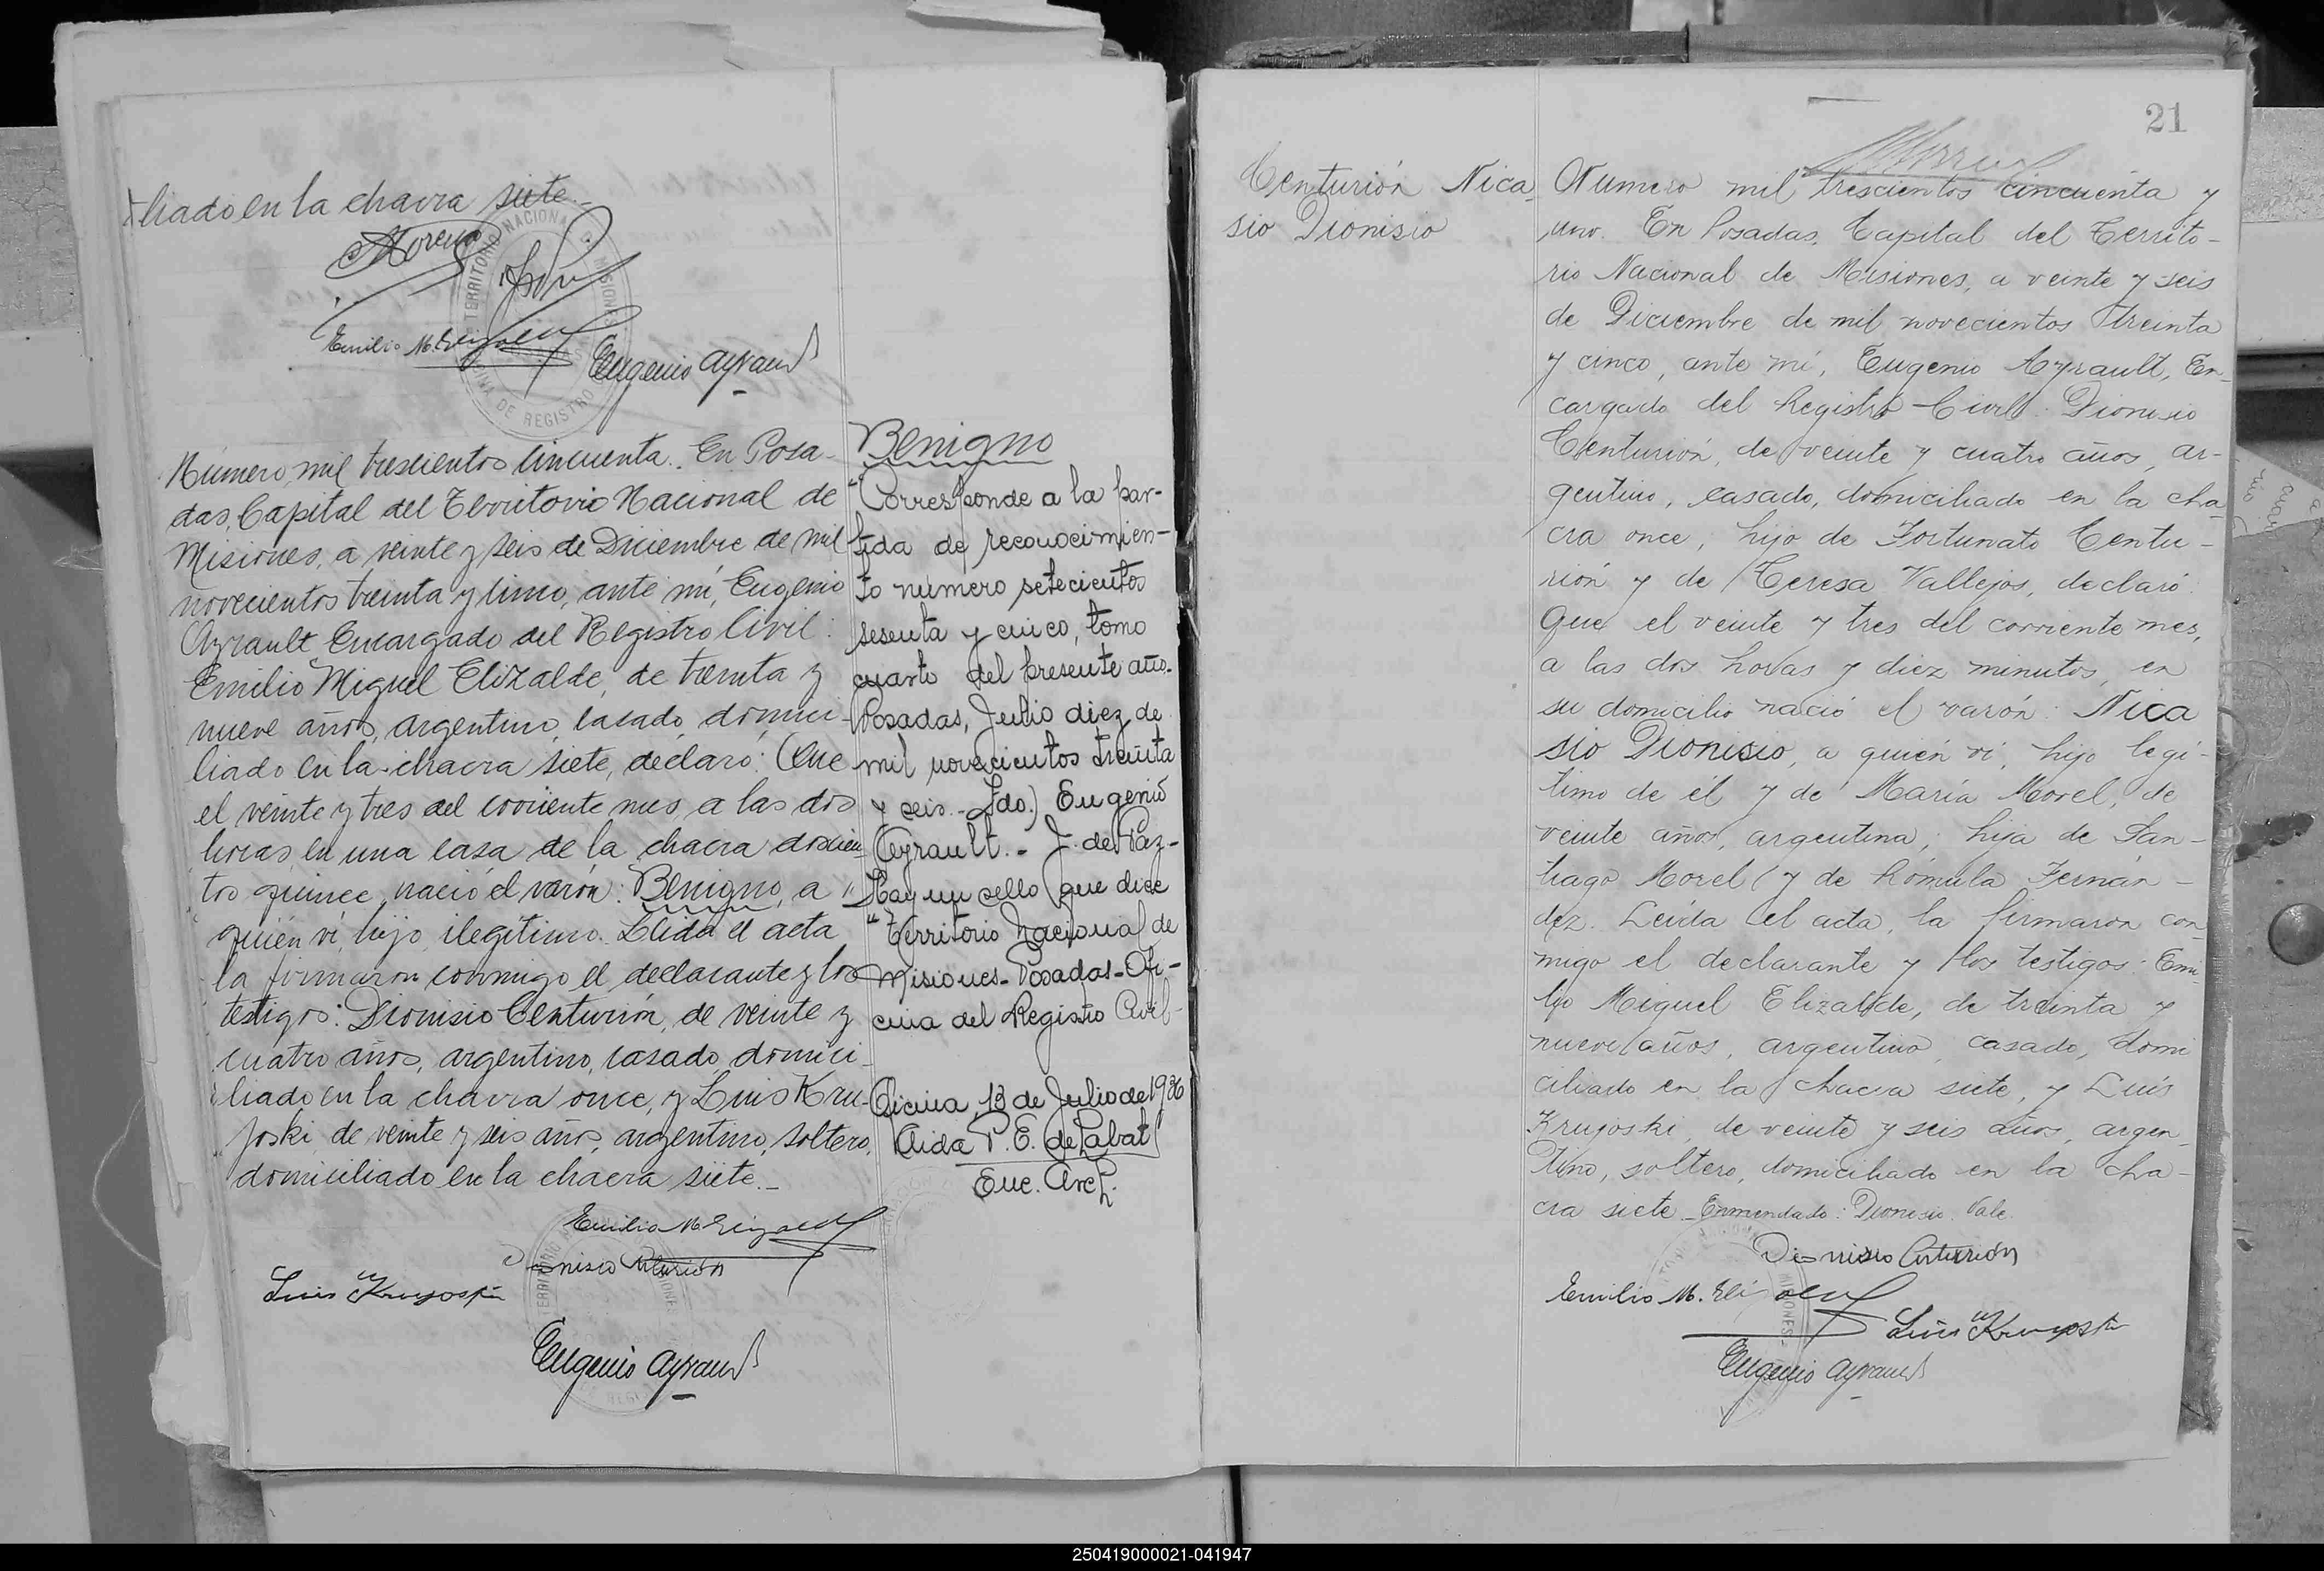 liado en la chacra siete.
Moreno
Emilio M. Elizalde
Eugenio Ayrault
TERRITORIO NACIONAL DE MISIONES
OFICINA DE REGISTRO
Número mil trescientos cincuenta. En Posa-
das, Capital del Territorio Nacional de
Misiones, a veinte y seis de Diciembre de mil
novecientos treinta y cinco, ante mí, Eugenio
Ayrault, Encargado del Registro Civil:
Emilio Miguel Elizalde, de treinta y
nueve años, argentino, casado, domici-
liado en la chacra siete, declaró: Que
el veinte y tres del corriente mes, a las dos
horas, en una casa de la chacra doscien
tos quince, nació el varón: Benigno, a
quién ví, hijo ilegítimo. Leída el acta
la firmaron conmigo el declarante y los
testigos: Dionisio Centurión, de veinte y
cuatro años, argentino, casado, domici-
liado en la chacra once, y Luis Kru-
joski, de veinte y seis años, argentino, soltero,
domiciliado en la chacra siete.-
Emilio M. Elizalde
Dionisio Centurión
Luis Krujoski
Eugenio Ayrault
Benigno
"Corresponde a la par-
tida de reconocimien-
to número setecientos
sesenta y cinco, tomo
cuarto del presente año.
Posadas, Julio diez de
mil novecientos treinta
y seis.- Fdo.) Eugenio
Ayrault.- J. de Paz-
Hay un sello que dice
"Territorio Nacional de
Misiones-Posadas-Ofi-
cina del Registro Civil-
Oficina, 13 de Julio de 1936
Aida P. E. de Labat
Enc. Arch.
21
Centurión Nica
sio Dionisio
Número mil trescientos cincuenta y
uno. En Posadas, Capital del Territo-
rio Nacional de Misiones, a veinte y seis
de Diciembre de mil novecientos treinta
y cinco, ante mí, Eugenio Ayrault, En-
cargado del Registro Civil: Dionisio
Centurión, de veinte y cuatro años, ar-
gentino, casado, domiciliado en la cha
cra once, hijo de Fortunato Centu-
rión y de Teresa Vallejos, declaró:
Que el veinte y tres del corriente mes,
a las dos horas y diez minutos, en
su domicilio nació el varón: Nica
sio Dionisio, a quién ví, hijo legí-
timo de él y de María Morel, de
veinte años, argentina, hija de San-
tiago Morel y de Rómula Fernán-
dez. Leída el acta, la firmaron con
migo el declarante y los testigos: Emi
lio Miguel Elizalde, de treinta y
nueve años, argentino, casado, domi
ciliado en la chacra siete, y Luis
Krujoski, de veinte y seis años, argen-
tino, soltero, domiciliado en la cha-
cra siete. Enmendado: Dionisio. Vale.
Dionisio Centurión
Emilio M. Elizalde
Luis Krujoski
Eugenio Ayrault
250419000021-041947